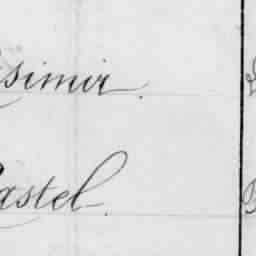 simir.
astel.